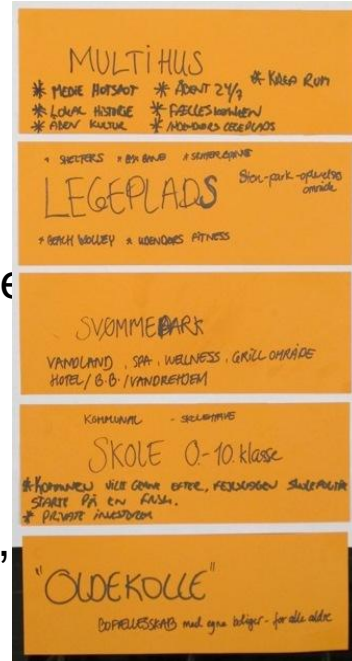 MULTIHUS
* MEDIE HOTSPOT * ÅBENT 24/7 * KREA RUM
* LOKAL HISTORIE * FÆLLESKØKKEN
* ÅBEN KULTUR * INDENDØRS LEGEPLADS
* SHELTERS * BMX BANE * SKATERBANE
LEGEPLADS
Sten-park-oplevelses
område
* BEACH VOLLEY * UDENDØRS FITNESS
e
SVØMMEPARK
VANDLAND, SPA, WELLNESS, GRILL OMRÅDE
HOTEL / B.B. / VANDREHJEM
KOMMUNAL - SKOLEHAVE
SKOLE 0.-10. klasse
* KOMMUNEN VILLE GERNE EFTER, SKOLEPOLITIK
STARTE PÅ EN FRISK.
* PRIVATE INVESTORER
,
"OLDEKOLLE"
BOFÆLLESSKAB med egne boliger - for alle aldre